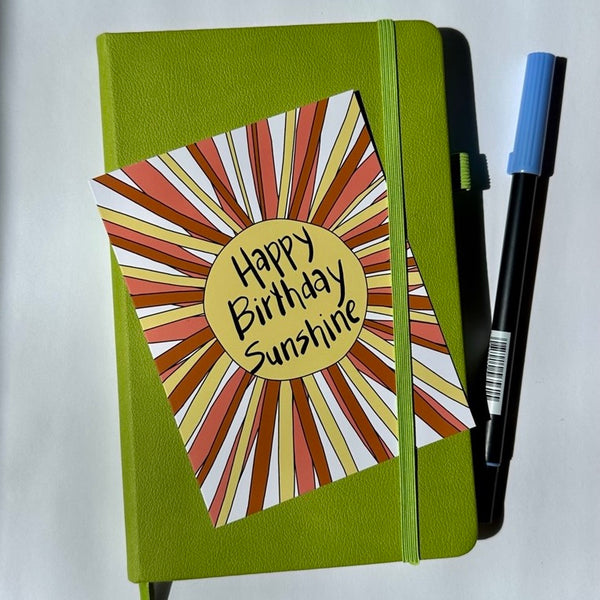 Happy
Birthday
Sunshine